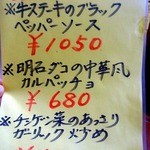 ※牛ステーキのブラック
ペッパーソース
￥1050
※明石ダコの中華風
カルパッチョ
￥680
※チンゲン菜のあっさり
ガーリック炒め